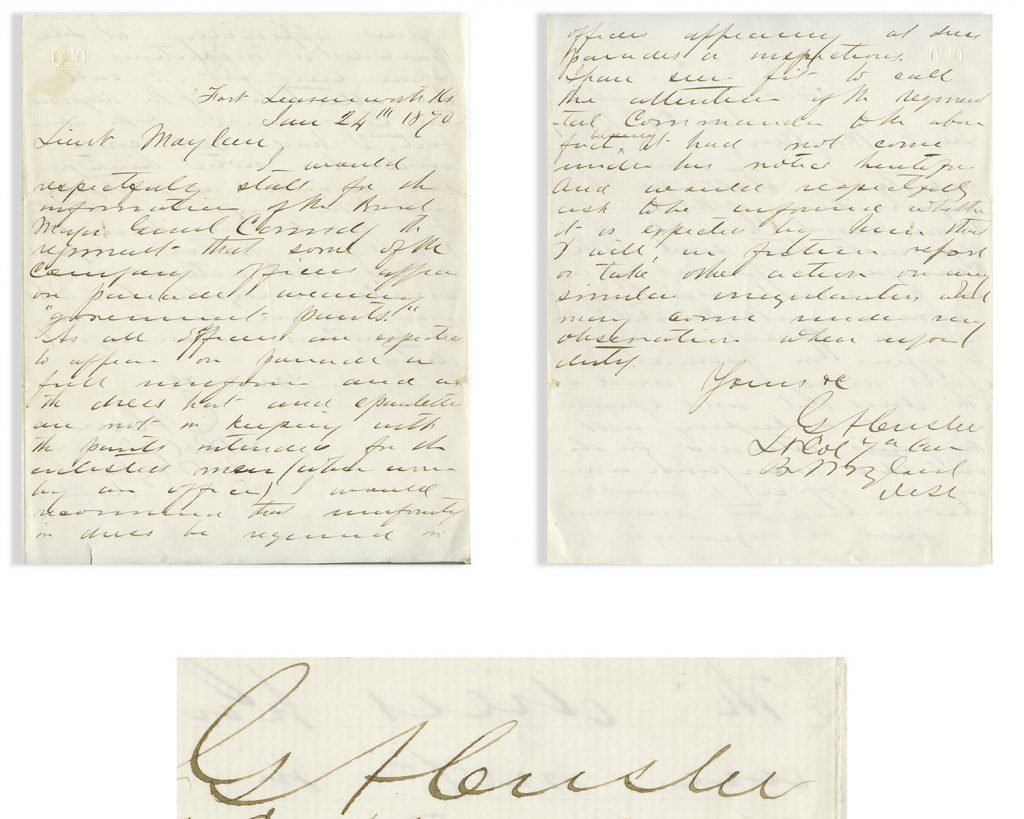 Fort Leavenworth Ks
Jan 24th 1870
Lieut Moylan
I would
respectfully state for the
information of the Brevet
Major General Comndg the
regiment that some of the
Company Officers appear
on parade wearing
"government pants."
As all Officers are expected
to appear on parade in
full uniform and as
the dress hat and epaulettes
are not in keeping with
the pants intended for the
enlisted men (when worn
by an officer) I would
recommend that uniformity
in dress be required in
officers appearing at dress
parades or inspections.
I have seen fit to call
the attention of the regimen
-tal Commander to the above
fact, it had not come
under his notice heretofore
and would respectfully
ask to be informed whether
it is expected by him that
I will, in future report
or take other action on any
similar irregularities which
may come under my
observation when upon
duty.
Yours &c
G A Custer
Lt Col 7th Cav
Bt M Genl
G A Custer